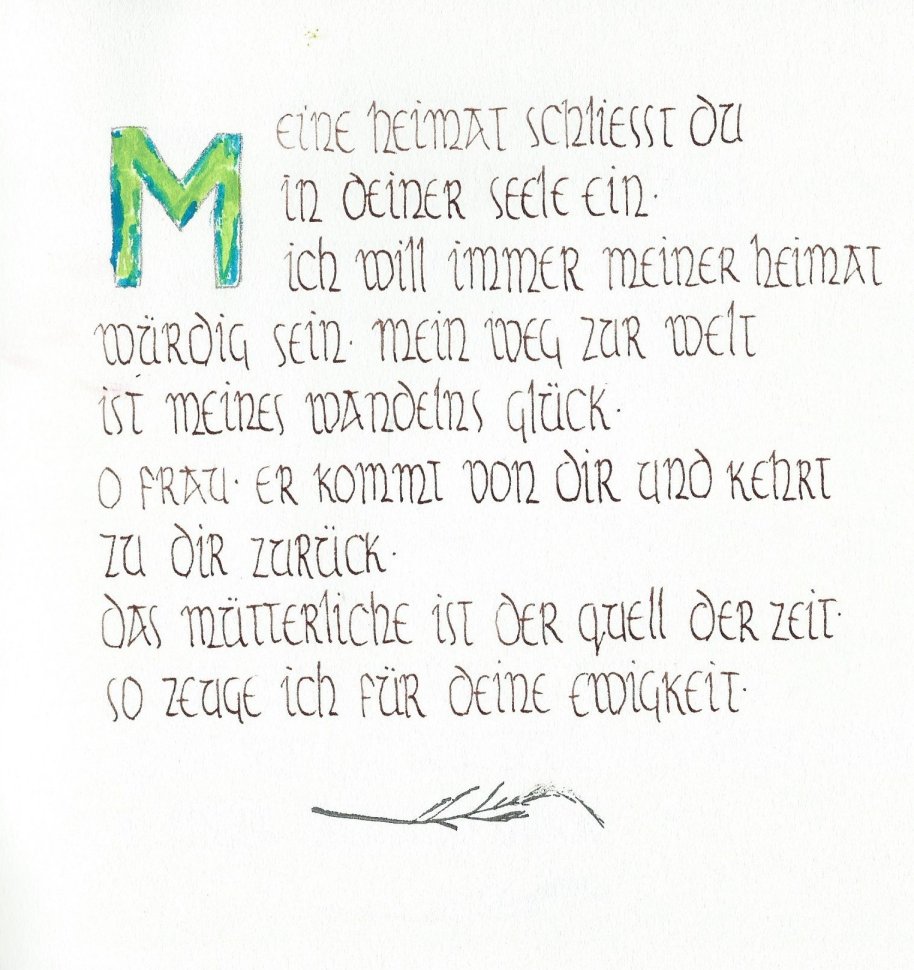 Meine Heimat schliesst du
in deiner Seele ein.
ich will immer meiner Heimat
würdig sein. mein Weg zur Welt
ist meines Wandelns Glück.
o Frau. er kommt von dir und kehrt
zu dir zurück.
das Mütterliche ist der Quell der Zeit.
so zeuge ich für deine Ewigkeit.